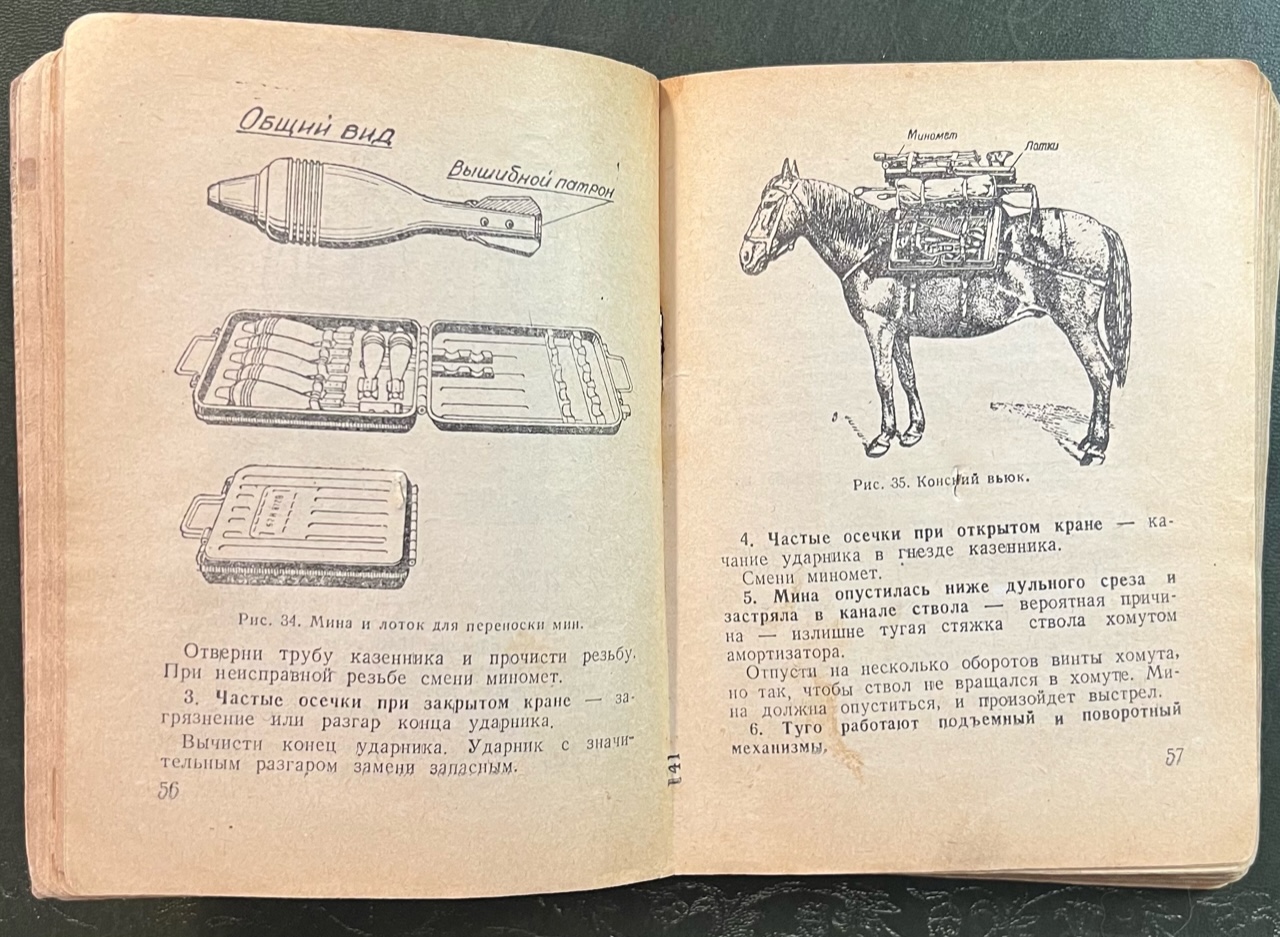 Общий вид
Вышибной патрон
Рис. 34. Мина и лоток для переноски мин.
Отверни трубу казенника и прочисти резьбу.
При неисправной резьбе смени миномет.
3. Частые осечки при закрытом кране — за-
грязнение или разгар конца ударника.
Вычисти конец ударника. Ударник с значи-
тельным разгаром замени запасным.
56
Миномет
Лотки
Рис. 35. Конский вьюк.
4. Частые осечки при открытом кране — ка-
чание ударника в гнезде казенника.
Смени миномет.
5. Мина опустилась ниже дульного среза и
застряла в канале ствола — вероятная причи-
на — излишне тугая стяжка ствола хомутом
амортизатора.
Отпусти на несколько оборотов винты хомута,
но так, чтобы ствол не вращался в хомуте. Ми-
на должна опуститься, и произойдет выстрел.
6. Туго работают подъемный и поворотный
механизмы,
57